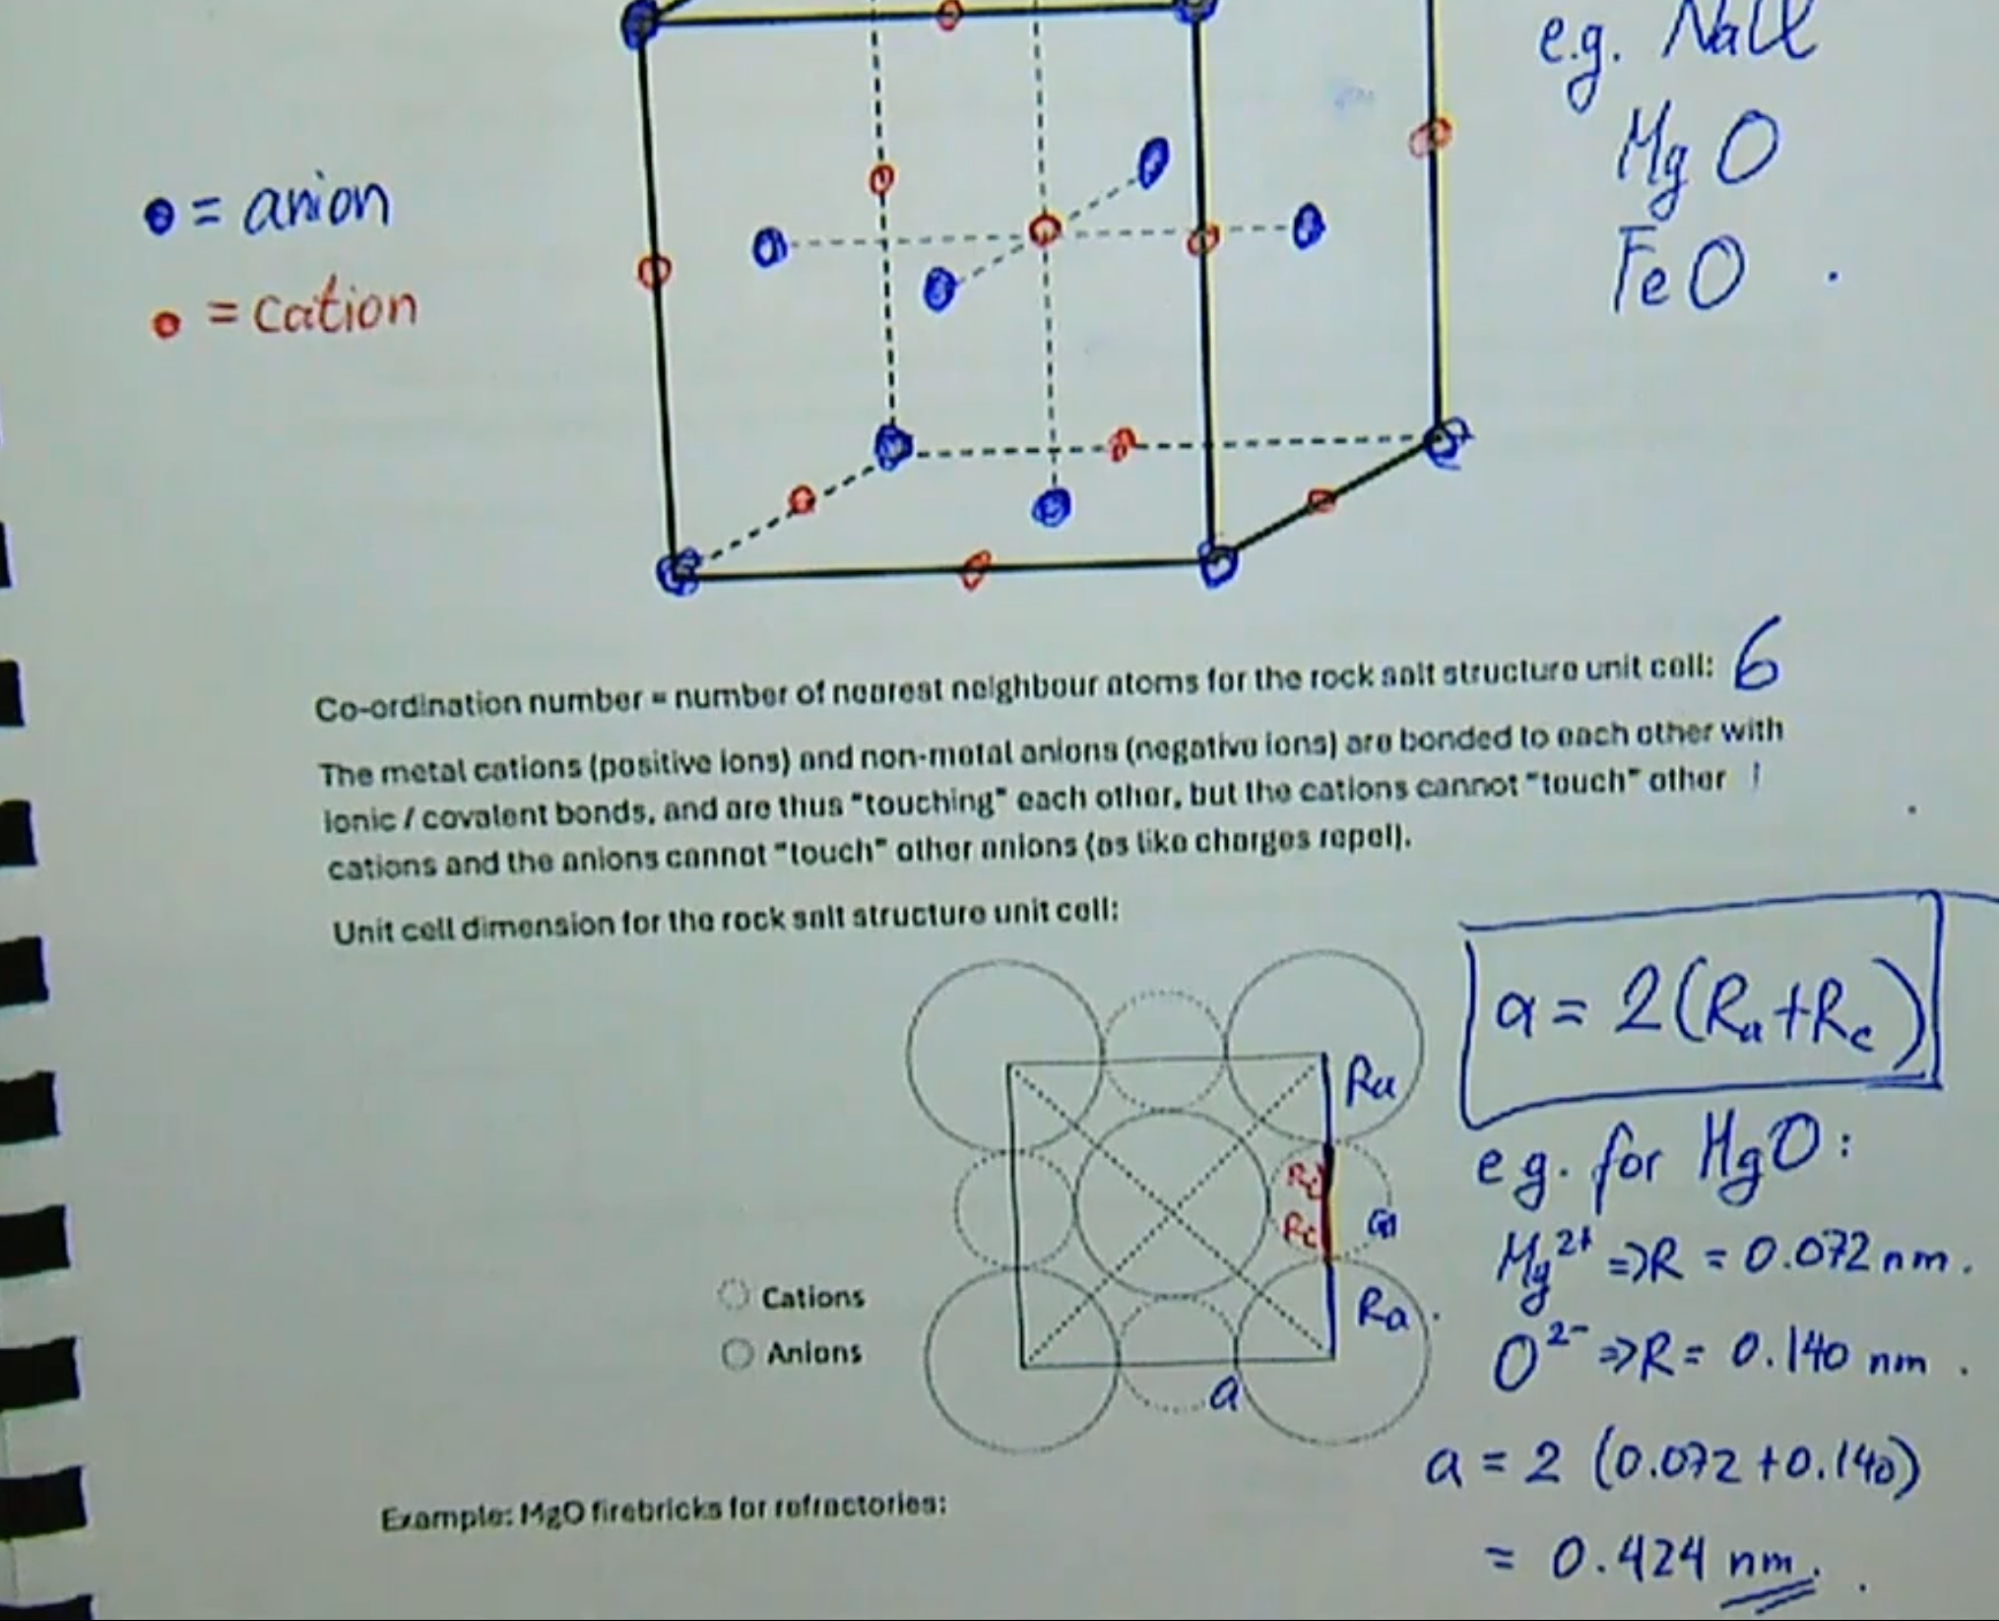 e.g. NaCl
MgO
FeO
= anion
= cation
Co-ordination number = number of nearest neighbour atoms for the rock salt structure unit cell: 6
The metal cations (positive ions) and non-metal anions (negative ions) are bonded to each other with
ionic / covalent bonds, and are thus "touching" each other, but the cations cannot "touch" other
cations and the anions cannot "touch" other anions (as like charges repel).
Unit cell dimension for the rock salt structure unit cell:
a = 2(Ra+Rc)
Ra
Rc
Rc
Ra
a
Cations
Anions
e.g. for MgO:
Mg2+ => R = 0.072 nm.
O2- => R = 0.140 nm.
a = 2 (0.072 + 0.140)
= 0.424 nm.
Example: MgO firebricks for refractories: